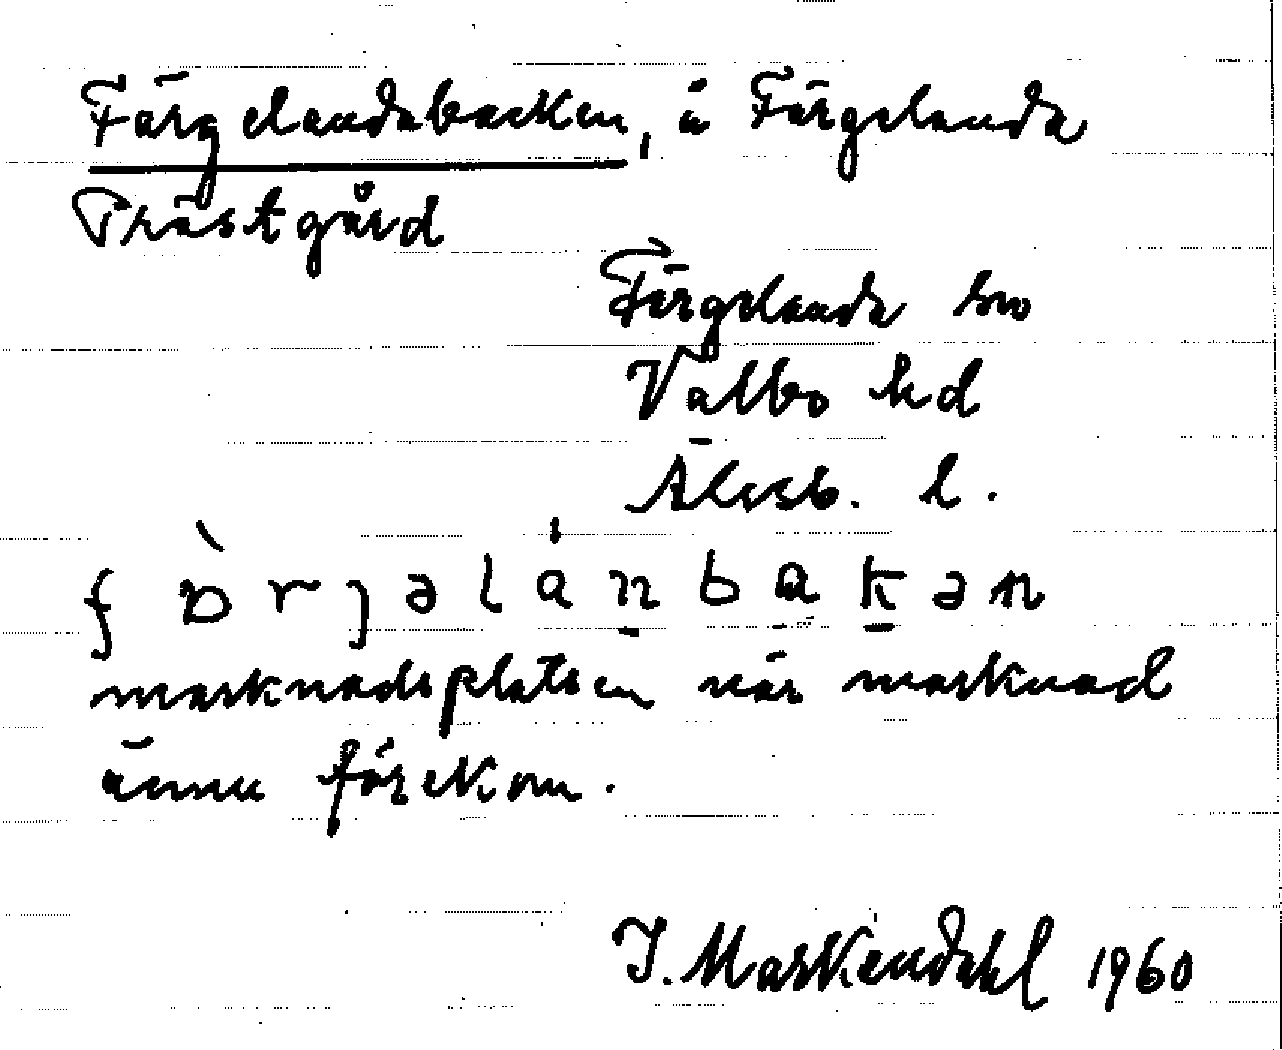 Färgelandabacken, å Färgelanda
Prästgård
Färgelanda sn
Valbo hd
Älvsb. l.
fòrjəlánbakən
marknadsplatsen när marknad
ännu förekom.
I. Markendahl 1960